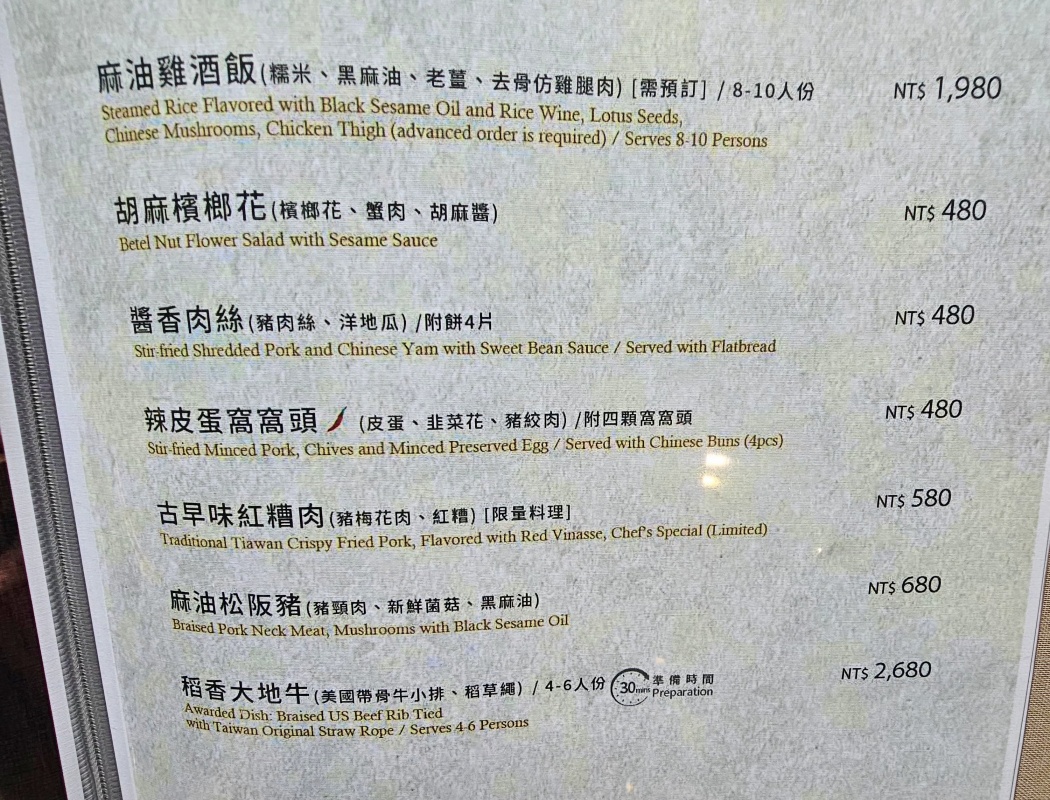 麻油雞酒飯(糯米、黑麻油、老薑、去骨仿雞腿肉) [需預訂] / 8-10人份 NT$ 1,980
Steamed Rice Flavored with Black Sesame Oil and Rice Wine, Lotus Seeds,
Chinese Mushrooms, Chicken Thigh (advanced order is required) / Serves 8-10 Persons
胡麻檳榔花(檳榔花、蟹肉、胡麻醬) NT$ 480
Betel Nut Flower Salad with Sesame Sauce
醬香肉絲(豬肉絲、洋地瓜) /附餅4片 NT$ 480
Stir-fried Shredded Pork and Chinese Yam with Sweet Bean Sauce / Served with Flatbread
辣皮蛋窩窩頭 (皮蛋、韭菜花、豬絞肉) /附四顆窩窩頭 NT$ 480
Stir-fried Minced Pork, Chives and Minced Preserved Egg / Served with Chinese Buns (4pcs)
古早味紅糟肉(豬梅花肉、紅糟) [限量料理] NT$ 580
Traditional Tiawan Crispy Fried Pork, Flavored with Red Vinasse, Chef's Special (Limited)
麻油松阪豬(豬頸肉、新鮮菌菇、黑麻油) NT$ 680
Braised Pork Neck Meat, Mushrooms with Black Sesame Oil
稻香大地牛(美國帶骨牛小排、稻草繩) / 4-6人份 30mins 準備時間 NT$ 2,680
Preparation
Awarded Dish: Braised US Beef Rib Tied
with Taiwan Original Straw Rope / Serves 4-6 Persons